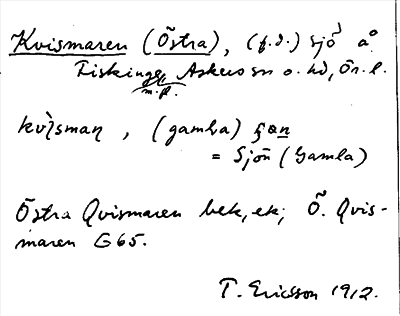 Kvismaren (Östra), (f.d.) sjö å
Fiskinge Askers sn o. hd, Ör. l.
m.fl.
(gamla)
= Sjön (Gamla)
Östra Qvismaren bek, ek; Ö. Qvis-
maren G65.
T. Ericsson 1912.